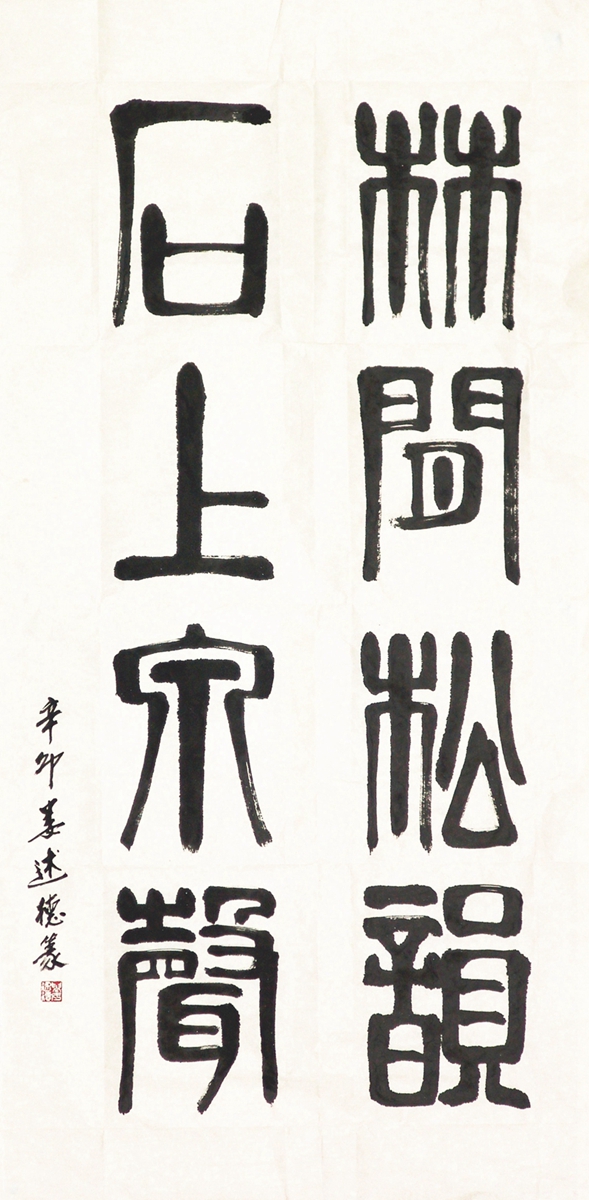 林間松韻
石上泉聲
辛卯婁述德篆